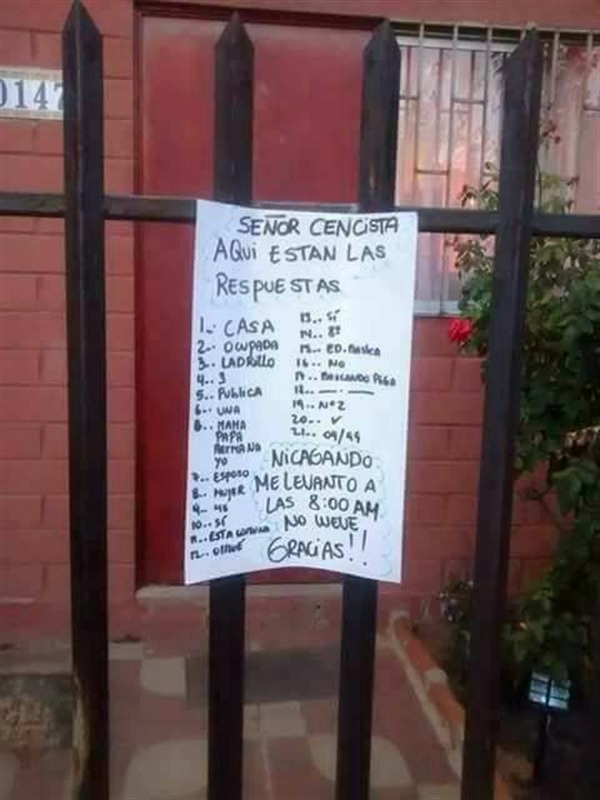 0147
SEÑOR CENCISTA
AQUI ESTAN LAS
RESPUESTAS
1.. CASA
2.. OCUPADA
3.. LADRILLO
4.. 3
5.. PUBLICA
6.. UNA
6.. MAMA
PAPA
HERMANA
YO
7.. ESPOSO
8.. MUJER
9.. 46
10.. SÍ
11.. ESTA COMUNA
12..
13.. SÍ
14.. 8º
15.. ED. BASICA
16.. NO
17.. BUSCANDO PEGA
18.. —.—
19.. Nº2
20.. ✓
21.. 09/99
NICAGANDO
ME LEVANTO A
LAS 8:00 AM
NO WEVE
GRACIAS!!